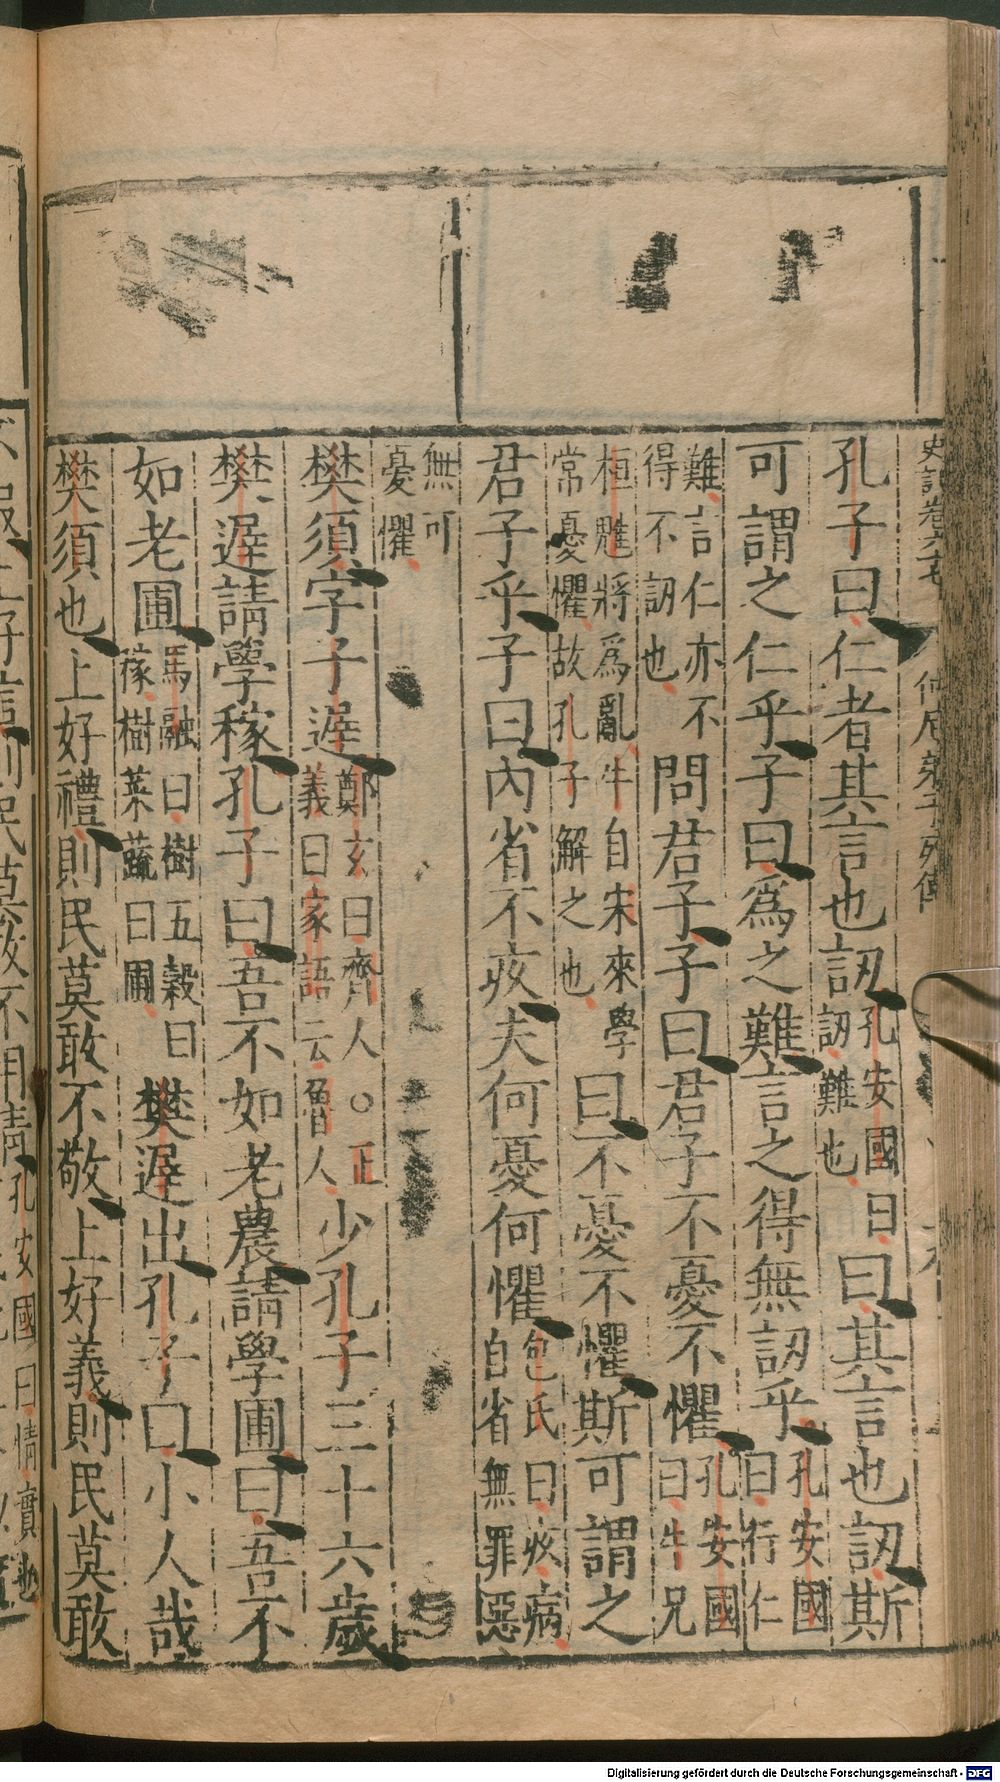 史記卷六七 仲尼弟子列傳
孔子曰仁者其言也訒孔安國曰訒難也曰其言也訒斯
可謂之仁乎子曰爲之難言之得無訒乎孔安國曰行仁
難言仁亦不得不訒也問君子子曰君子不憂不懼孔安國曰牛兄
桓魋將爲亂牛自宋來學常憂懼故孔子解之也曰不憂不懼斯可謂之
君子乎子曰內省不疚夫何憂何懼包氏曰疚病自省無罪惡
無可憂懼
樊須字子遲鄭玄曰齊人○正義曰家語云魯人少孔子三十六歲
樊遲請學稼孔子曰吾不如老農請學圃曰吾不
如老圃馬融曰樹五穀曰稼樹菜蔬曰圃樊遲出孔子曰小人哉
樊須也上好禮則民莫敢不敬上好義則民莫敢
好信則民莫敢不用情孔安國曰情實也
Digitalisierung gefördert durch die Deutsche Forschungsgemeinschaft - DFG